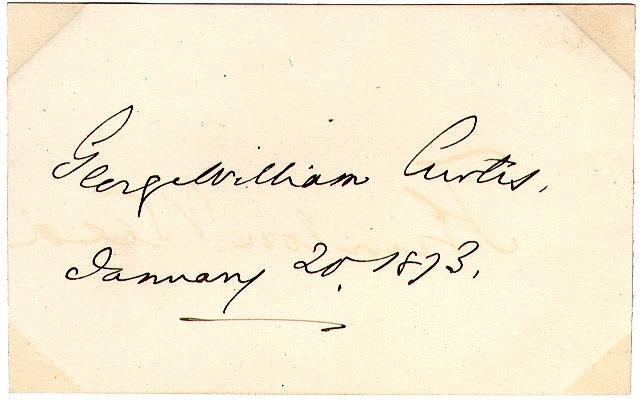 George William Curtis.
January 20, 1873.